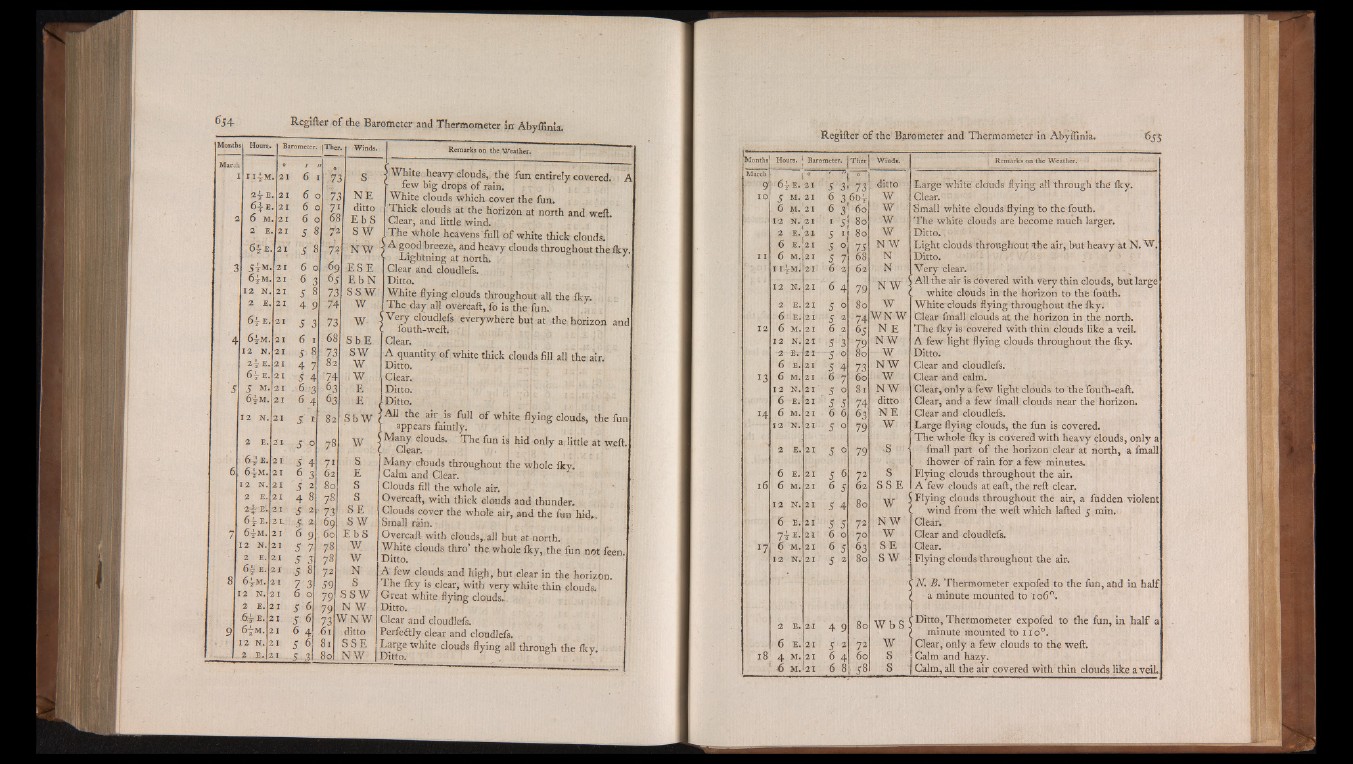 654 Regiſter of the Barometer and Thermometer in Abyſſinia.
Months Hours. Barometer. Ther. Winds. Remarks on the Weather.
March ° ′ ″ °
1 11½M. 21 6 1 73 S White heavy clouds, the ſun entirely covered. A
few big drops of rain.
2½ E. 21 6 0 73 N E White clouds which cover the ſun.
6½ E. 21 6 0 71 ditto Thick clouds at the horizon at north and weſt.
2 6 M. 21 6 0 68 E b S Clear, and little wind.
2 E. 21 5 8 72 S W The whole heavens full of white thick clouds.
6½ E. 21 5 8 72 N W A good breeze, and heavy clouds throughout the ſky.
Lightning at north.
3 5½M. 21 6 0 69 E S E Clear and cloudleſs.
6½M. 21 6 3 65 E b N Ditto.
12 N. 21 5 8 73 S S W White flying clouds throughout all the ſky.
2 E. 21 4 9 74 W The day all overcaſt, ſo is the ſun.
6½ E. 21 5 3 73 W Very cloudleſs everywhere but at the horizon and
ſouth-weſt.
4 6½M. 21 6 1 68 S b E Clear.
12 N. 21 5 8 73 SW A quantity of white thick clouds fill all the air.
2½ E. 21 4 7 82 W Ditto.
6½ E. 21 5 4 74 W Clear.
5 5 M. 21 6 3 63 E Ditto.
6½M. 21 6 4 63 E Ditto.
12 N. 21 5 1 82 S b W All the air is full of white flying clouds, the ſun
appears faintly.
2 E. 21 5 0 78 W Many clouds. The ſun is hid only a little at weſt.
Clear.
6¾ E. 21 5 4 71 S Many clouds throughout the whole ſky.
6 6½M. 21 6 3 62 E Calm and Clear.
12 N. 21 5 2 80 S Clouds fill the whole air.
2 E. 21 4 8 78 S Overcaſt, with thick clouds and thunder.
2¾ E. 21 5 2 73 S E Clouds cover the whole air, and the ſun hid.
6½ E. 21 5 2 69 S W Small rain.
7 6½M. 21 6 9 60 E b S Overcaſt with clouds, all but at north.
12 N. 21 5 7 78 W White clouds thro' the whole ſky, the ſun not ſeen.
2 E. 21 5 3 78 W Ditto.
6½ E. 21 5 8 72 N A few clouds and high, but clear in the horizon.
8 6½M. 21 7 3 59 S The ſky is clear, with very white thin clouds.
12 N. 21 6 0 79 S S W Great white flying clouds.
2 E. 21 5 6 79 N W Ditto.
6½ E. 21 5 6 73 W N W Clear and cloudleſs.
9 6½M. 21 6 4 61 ditto Perfectly clear and cloudleſs.
12 N. 21 5 6 81 S S E Large white clouds flying all through the ſky.
2 E. 21 5 3 80 N W Ditto.
Regiſter of the Barometer and Thermometer in Abyſſinia. 655
Months Hours. Barometer. Ther Winds. Remarks on the Weather.
March ° ′ ″ °
9 6½ E. 21 5 3 73 ditto Large white clouds flying all through the ſky.
10 5 M. 21 6 3 60½ W Clear.
6 M. 21 6 3 60 W Small white clouds flying to the ſouth.
12 N. 21 1 5 80 W The white clouds are become much larger.
2 E. 21 5 1 80 W Ditto.
6 E. 21 5 0 75 N W Light clouds throughout the air, but heavy at N. W.
11 6 M. 21 5 7 68 N Ditto.
11½M. 21 6 2 62 N Very clear.
12 N. 21 6 4 79 N W All the air is covered with very thin clouds, but large
white clouds in the horizon to the ſouth.
2 E. 21 5 0 80 W White clouds flying throughout the ſky.
6 E. 21 5 2 74 W N W Clear ſmall clouds at the horizon in the north.
12 6 M. 21 6 2 65 N E The ſky is covered with thin clouds like a veil.
12 N. 21 5 3 79 N W A few light flying clouds throughout the ſky.
2 E. 21 5 0 80 W Ditto.
6 E. 21 5 4 73 N W Clear and cloudleſs.
13 6 M. 21 6 7 60 W Clear and calm.
12 N. 21 5 0 81 N W Clear, only a few light clouds to the ſouth-eaſt.
6 E. 21 5 5 74 ditto Clear, and a few ſmall clouds near the horizon.
14 6 M. 21 6 6 63 N E Clear and cloudleſs.
12 N. 21 5 0 79 W Large flying clouds, the ſun is covered.
The whole ſky is covered with heavy clouds, only a
2 E. 21 5 0 79 S ſmall part of the horizon clear at north, a ſmall
ſhower of rain for a few minutes.
6 E. 21 5 6 72 S Flying clouds throughout the air.
16 6 M. 21 6 5 62 S S E A few clouds at eaſt, the reſt clear.
12 N. 21 5 4 80 W Flying clouds throughout the air, a ſudden violent
wind from the weſt which laſted 5 min.
6 E. 21 5 5 72 N W Clear.
7½ E. 21 6 0 70 W Clear and cloudleſs.
17 6 M. 21 6 5 63 S E Clear.
12 N. 21 5 2 80 S W Flying clouds throughout the air.
N. B. Thermometer expoſed to the ſun, and in half
a minute mounted to 106°.
2 E. 21 4 9 80 W b S Ditto, Thermometer expoſed to the ſun, in half a
minute mounted to 110°.
6 E. 21 5 2 72 W Clear, only a few clouds to the weſt.
18 4 M. 21 6 4 60 S Calm and hazy.
6 M. 21 6 8 58 S Calm, all the air covered with thin clouds like a veil.